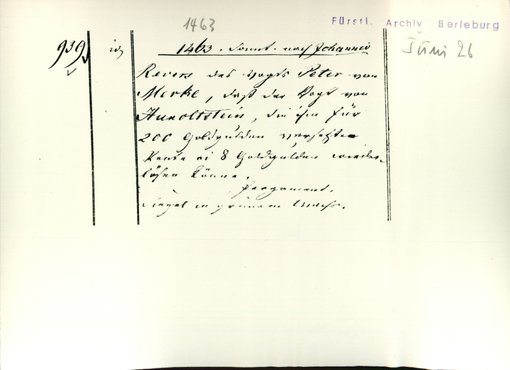 1463
Fürstl. Archiv Berleburg
Juni 26
939
1463. Sonnt. nach Johannis
Revers des Vogts Peter von
Merke, daß der Vogt von
Hunoltstein, die ihm für
200 Goldgulden versetzte
Rente ad 8 Goldgulden wieder
lösen könne.
Pergament.
Siegel in grünem Wachs.